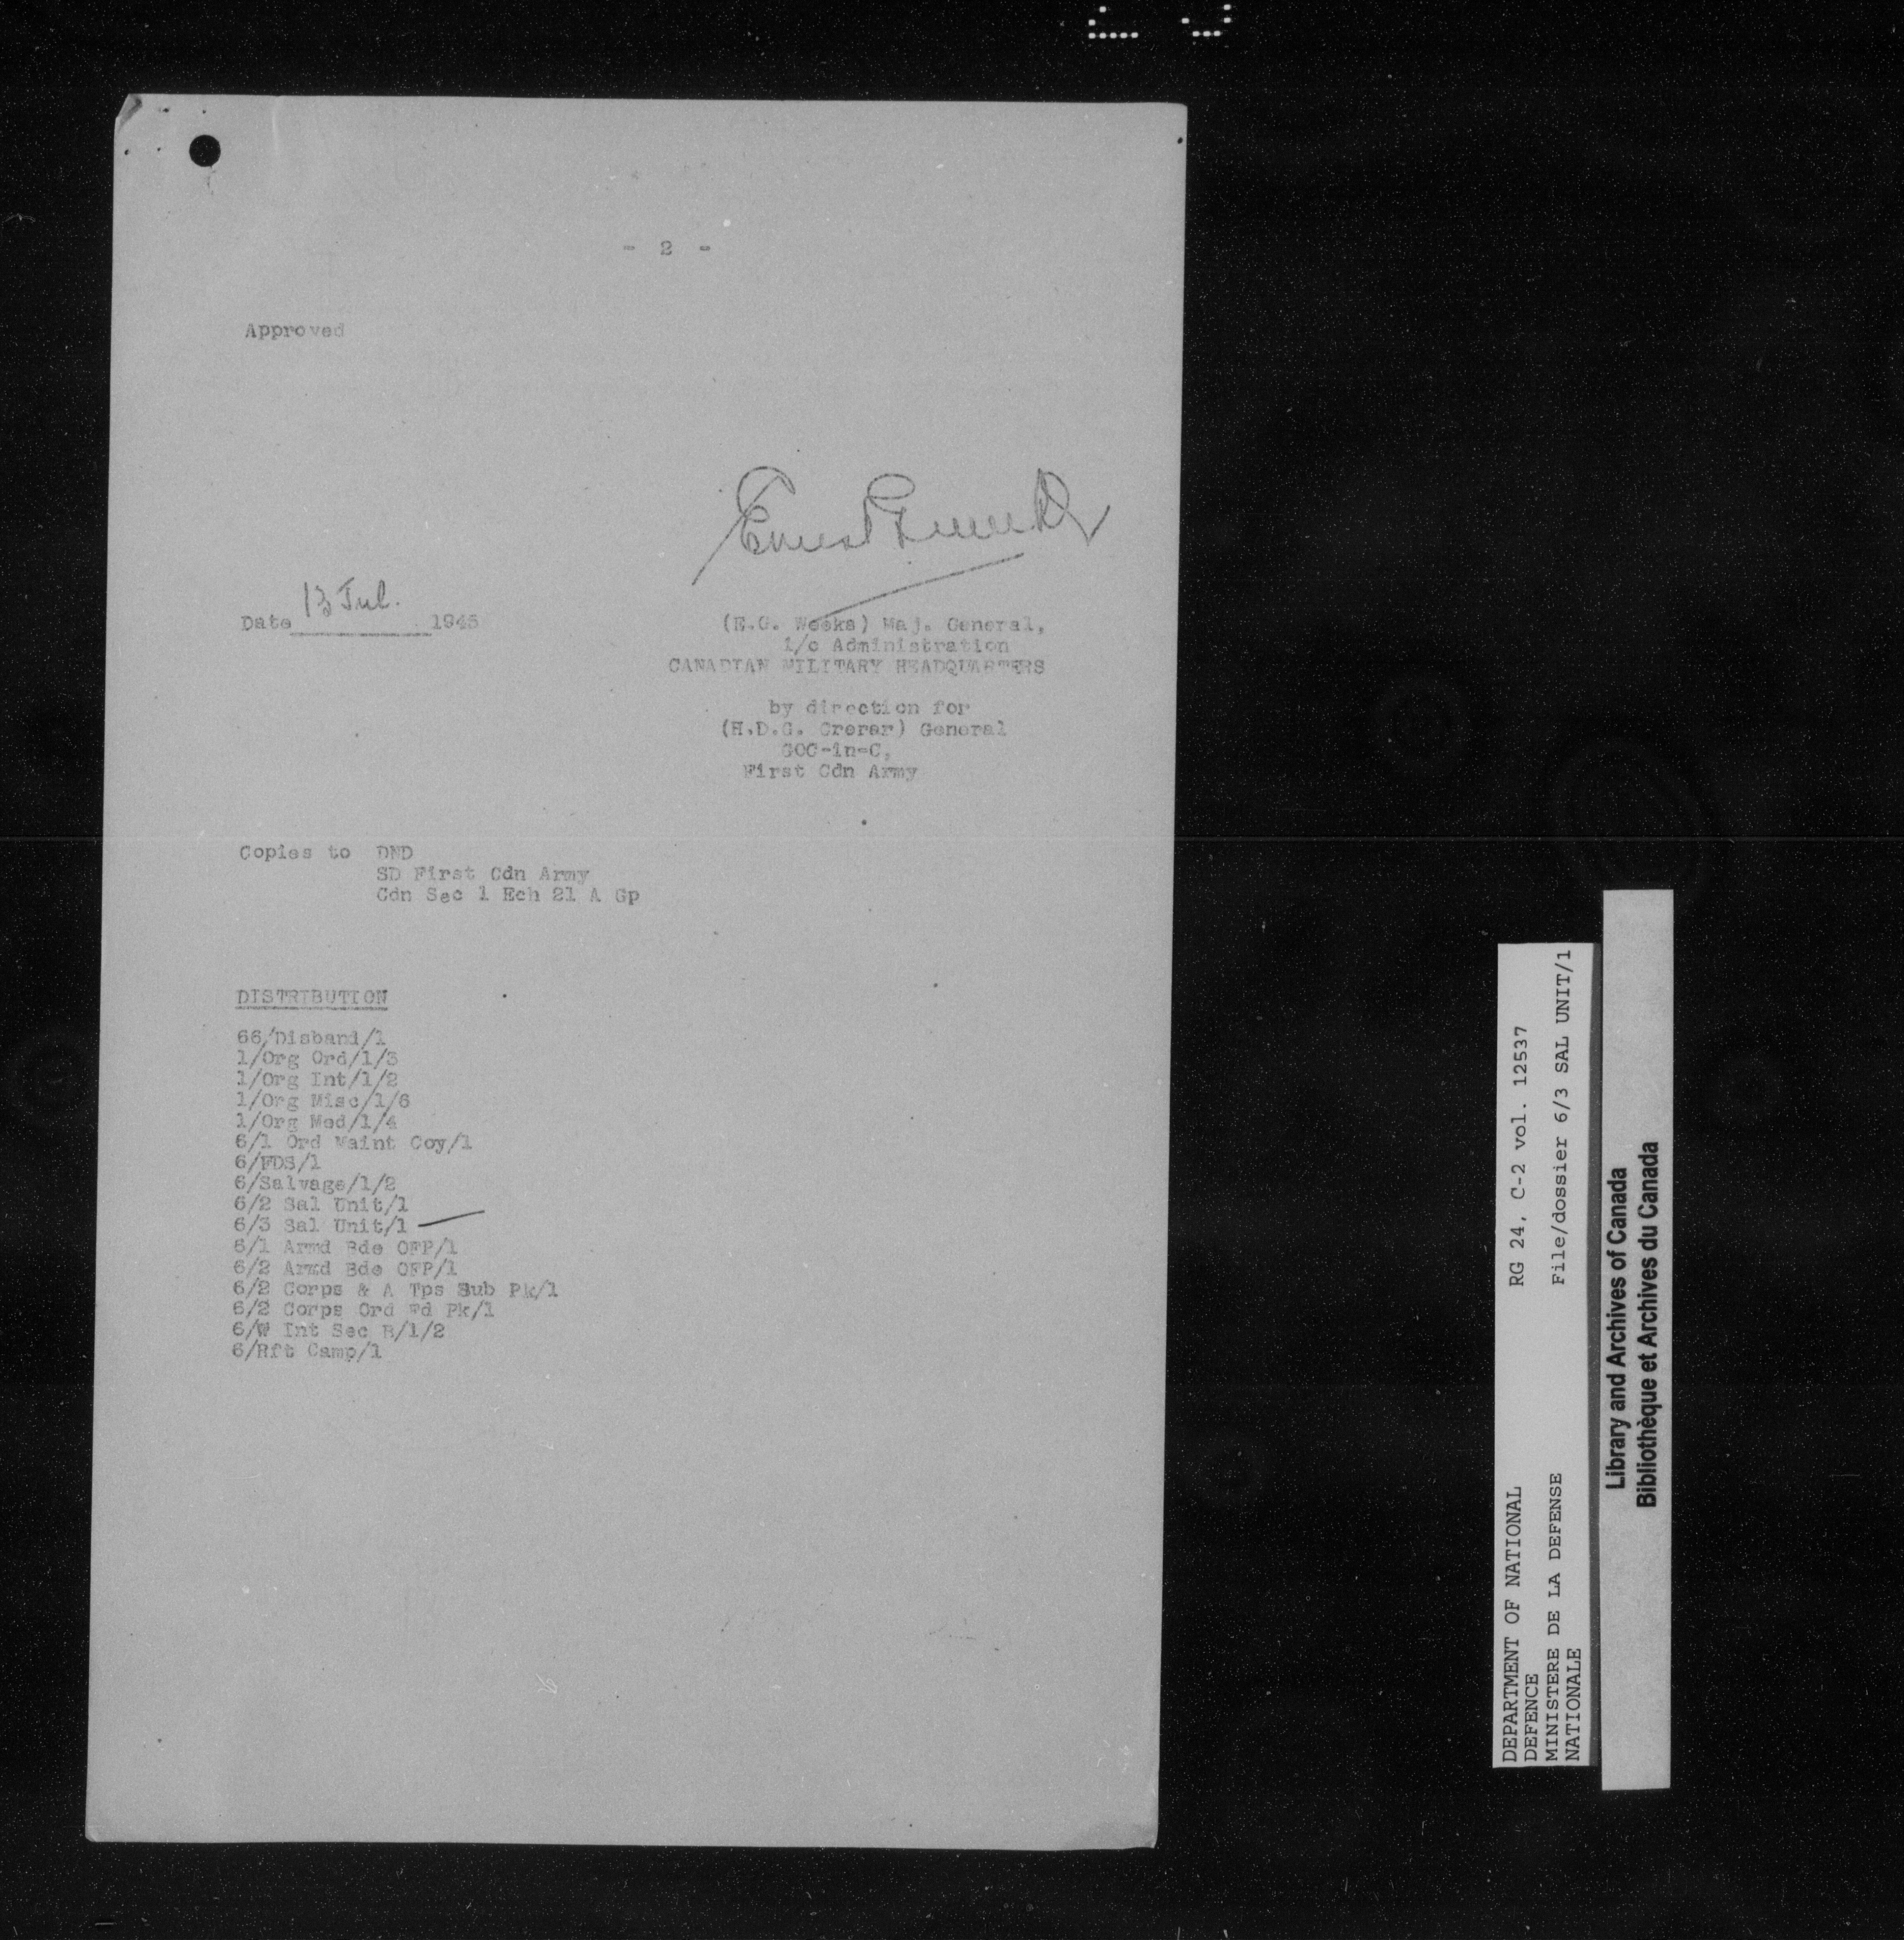 - 2 -
Approved
Date 13 Jul. 1945
(E.G. Weeks) Maj. General,
i/c Administration
CANADIAN MILITARY HEADQUARTERS
by direction for
(H.D.G. Crerar) General
GOC-in-C,
First Cdn Army
Copies to DND
SD First Cdn Army
Cdn Sec 1 Ech 21 A Gp
DISTRIBUTION
66/Disband/1
1/Org Ord/1/3
1/Org Int/1/2
1/Org Misc/1/6
1/Org Med/1/4
6/1 Ord Maint Coy/1
6/FDS/1
6/Salvage/1/2
6/2 Sal Unit/1
6/3 Sal Unit/1
6/1 Armd Bde OFP/1
6/2 Armd Bde OFP/1
6/2 Corps & A Tps Sub Pk/1
6/2 Corps Ord Fd Pk/1
6/W Int Sec B/1/2
6/Rft Camp/1
DEPARTMENT OF NATIONAL
DEFENCE
MINISTERE DE LA DEFENSE
NATIONALE
RG 24, C-2 vol. 12537
File/dossier 6/3 SAL UNIT/1
Library and Archives of Canada
Bibliothèque et Archives du Canada